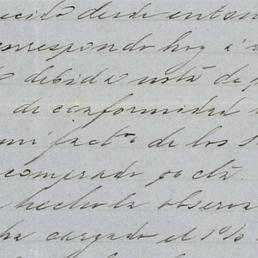 ecido desde enton
correspondo hoy á s
debida nota de
de conformidad
mi fact.º de los
comprado po cta
hecho la observa
ha cargado el 1%